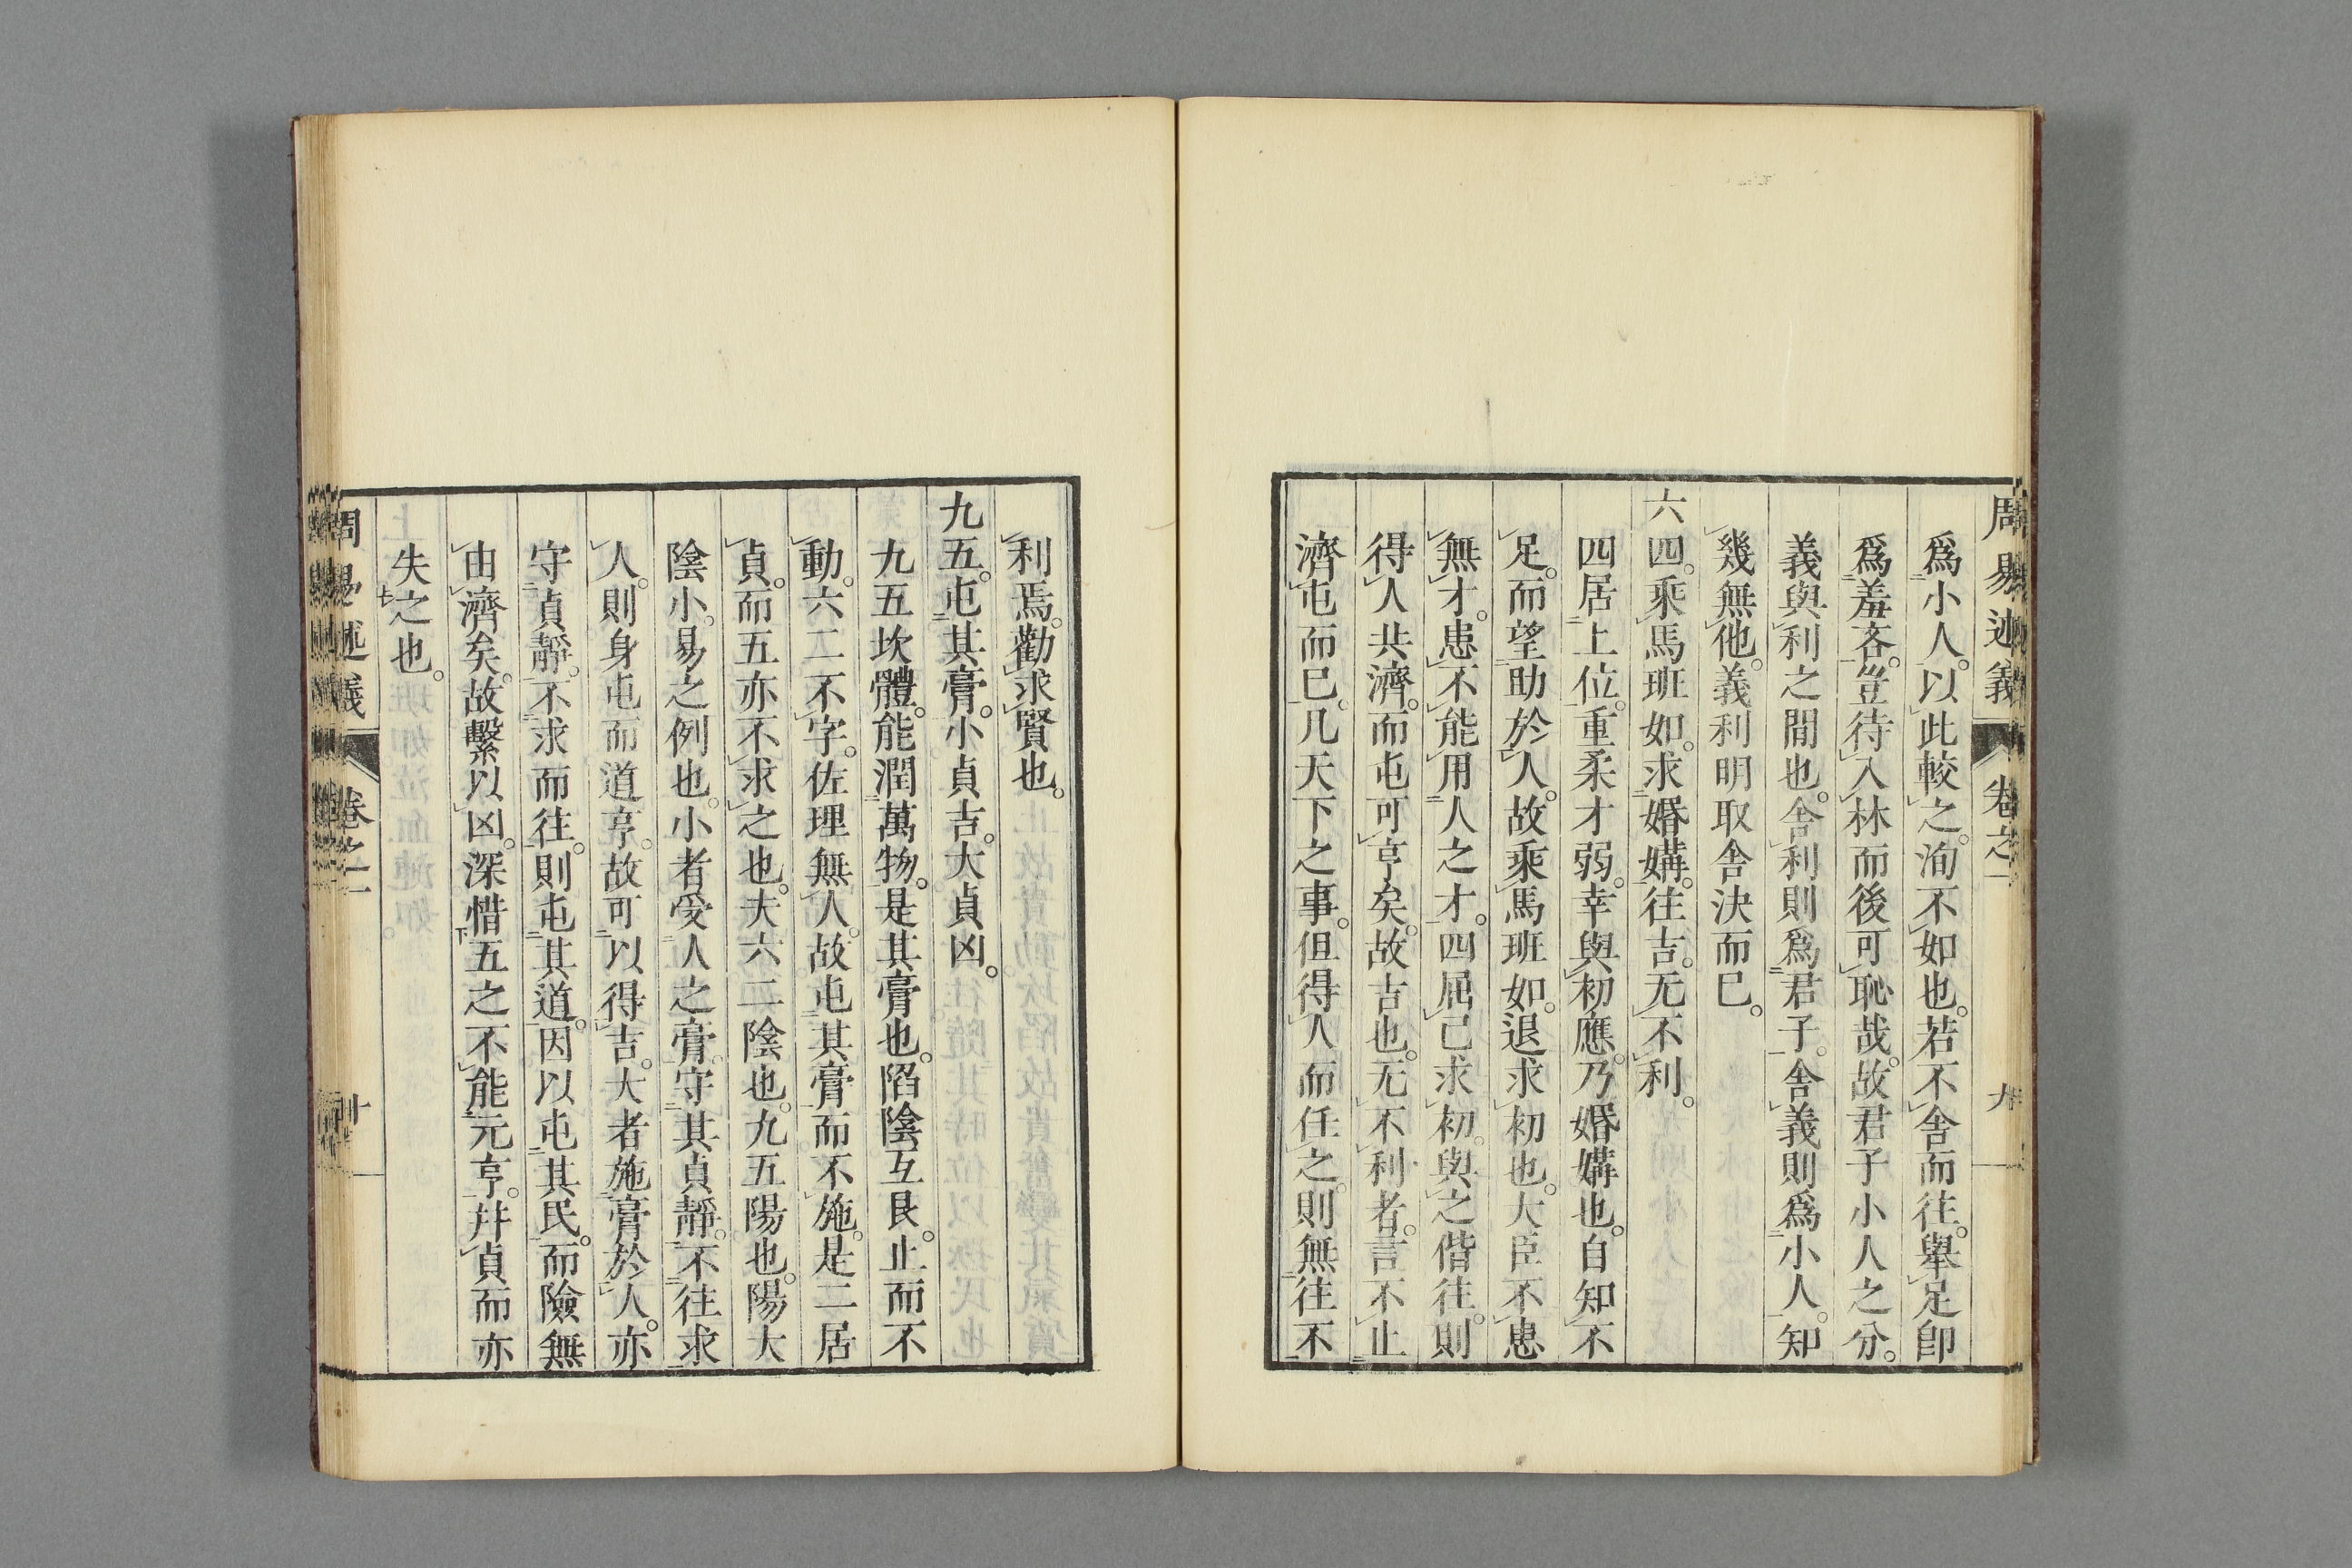 周易述義 卷之一 九
爲小人。以此較之。洵不如也。若不舍而往。舉足卽
爲羞吝。豈待入林而後可恥哉。故君子小人之分。
義與利之間也。舍利則爲君子。舍義則爲小人。知
幾無他。義利明取舍決而已。
六四。乘馬班如。求婚媾。往吉。无不利。
四居上位。重柔才弱。幸與初應。乃婚媾也。自知不
足。而望助於人。故乘馬班如。退求初也。大臣不患
無才。患不能用人之才。四屈己求初。與之偕往。則
得人共濟。而屯可亨矣。故吉也。无不利者。言不止
濟屯而已。凡天下之事。但得人而任之。則無往不
利焉。勸求賢也。
九五。屯其膏。小貞吉。大貞凶。
九五坎體。能潤萬物。是其膏也。陷陰互艮。止而不
動。六二不字。佐理無人。故屯其膏而不施。是二居
貞。而五亦不求之也。夫六二陰也。九五陽也。陽大
陰小。易之例也。小者受人之膏。守其貞靜。不往求
人。則身屯而道亨。故可以得吉。大者施膏於人。亦
守貞靜。不求而往。則屯其道。因以屯其民。而險無
由濟矣。故繫以凶。深惜五之不能元亨。幷貞而亦
失之也。
周易述義 卷之一 十